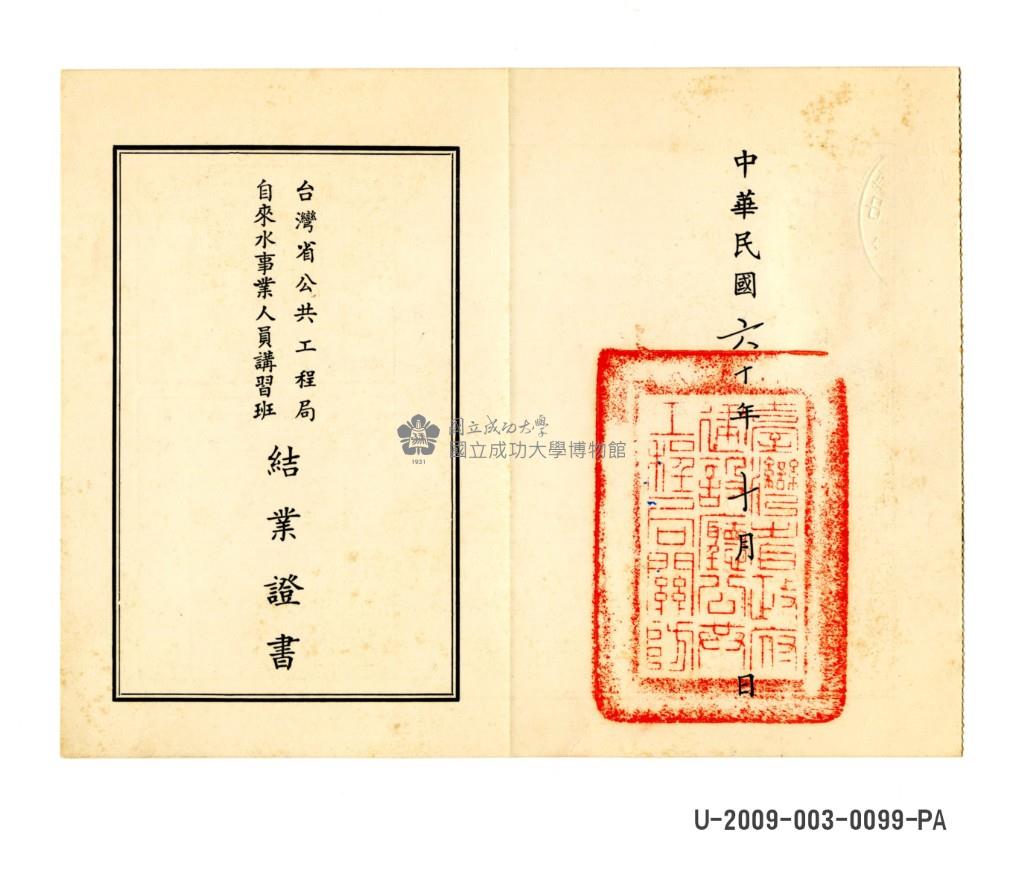 中華民國六十年十月 日
臺灣省政府
建設廳公共
工程局關防
台灣省公共工程局
自來水事業人員講習班
結業證書
1931
國立成功大學
國立成功大學博物館
U-2009-003-0099-PA